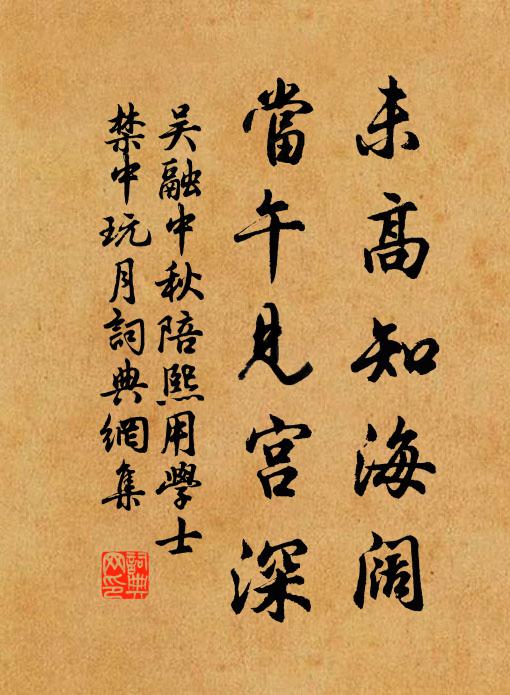 未高知海阔
當午见宫深
吴融中秋陪熙用學士
禁中玩月詞典網集
詞典网印